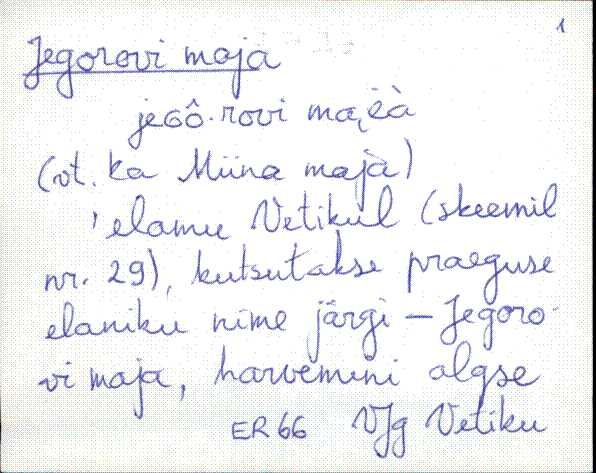 1
Jegorovi maja
(vt. ka Miina maja)
'elamu Vetikul (skeemil
nr. 29), kutsutakse praeguse
elaniku nime järgi – Jegoro-
vi maja, harvemini algse
ER 66 VJg Vetiku